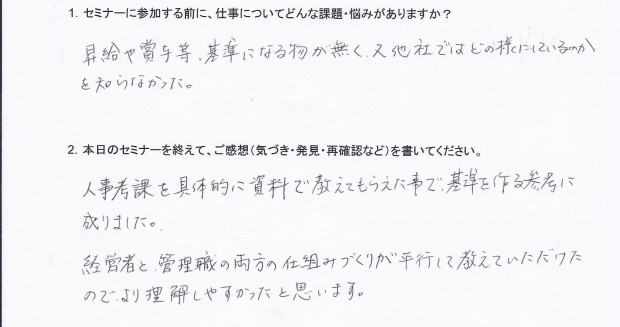 1. セミナーに参加する前に、仕事についてどんな課題・悩みがありますか？
昇給や賞与等、基準になる物が無く、又他社ではどの様にしているのか
を知らなかった。
2. 本日のセミナーを終えて、ご感想（気づき・発見・再確認など）を書いてください。
人事考課を具体的に資料で教えてもらえた事で、基準を作る参考に
成りました。
経営者と、管理職の両方の仕組みづくりが平行して教えていただけた
ので、より理解しやすかったと思います。